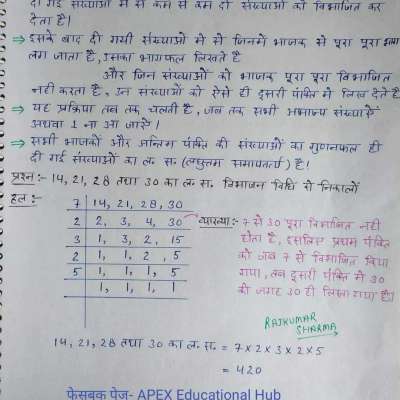 दी गई संख्याओं में से कम से कम दो संख्याओं को विभाजित कर
देता है।
⇒ इसके बाद दी गयी संख्याओं में से जिनमें भाजक से पूरा पूरा भाग
लग जाता है, उसका भागफल लिखते है
और जिन संख्याओं को भाजक पूरा पूरा विभाजित
नहीं करता है, उन संख्याओं को ऐसे ही दूसरी पंक्ति में लिख देते है
⇒ यह प्रक्रिया तब तक चलती है, जब तक सभी अभाज्य संख्याएँ
अथवा 1 ना आ जाऐ।
⇒ सभी भाजकों और अन्तिम पंक्ति की संख्याओं का गुणनफल ही
दी गई संख्याओं का ल. स. (लघुत्तम समापवर्त्य) है।
प्रश्न :- 14, 21, 28 तथा 30 का ल. स. विभाजन विधि से निकालों
हल :-
7 | 14, 21, 28, 30
2 | 2, 3, 4, 30
3 | 1, 3, 2, 15
2 | 1, 1, 2, 5
5 | 1, 1, 1, 5
1, 1, 1, 1
व्याख्या :- 7 से 30 पूरा विभाजित नहीं
होता है, इसलिए प्रथम पंक्ति
को जब 7 से विभाजित किया
गया, तब दूसरी पंक्ति में 30
की जगह 30 ही लिखा गया है।
RAJKUMAR
SHARMA
14, 21, 28 तथा 30 का ल. स. = 7 × 2 × 3 × 2 × 5
= 420
फेसबुक पेज- APEX Educational Hub